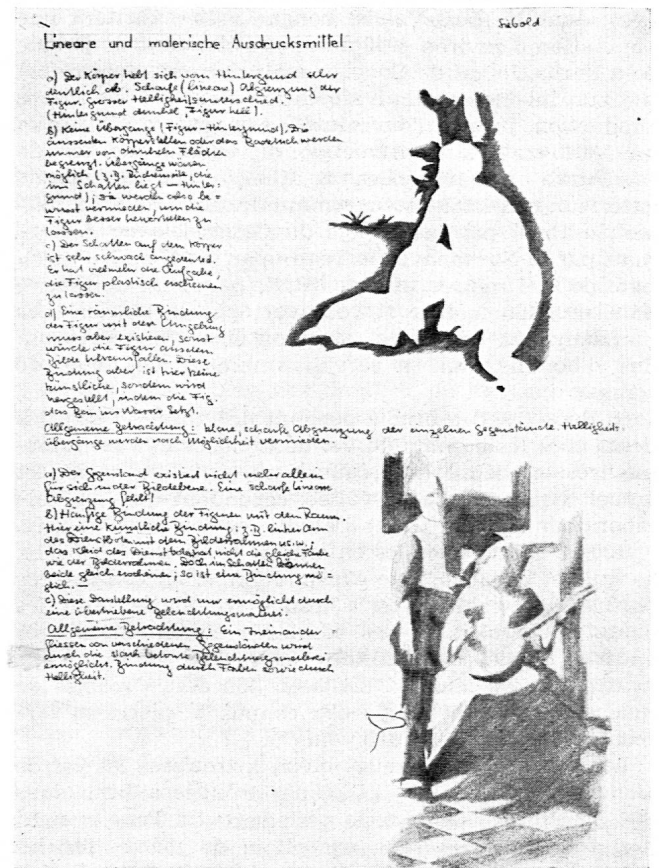 Siebold
Lineare und malerische Ausdrucksmittel
a) Der Körper hebt sich vom Hintergrund sehr
deutlich ab. Scharfe (lineare) Abgrenzung der
Figur. Grosser Helligkeitsunterschied.
(Hintergrund dunkel, Figur hell).
b) Keine Übergänge (Figur–Hintergrund). Die
äussersten Körperstellen oder das Badetuch werden
immer von dunklen Flächen
begrenzt. Übergänge wären
möglich (z.B. Rückenseite, die
im Schatten liegt – Hinter-
grund); sie werden also be-
wusst vermieden, um die
Figur besser hervortreten zu
lassen.
c) Der Schatten auf dem Körper
ist sehr schwach angedeutet.
Er hat vielmehr die Aufgabe,
die Figur plastisch erscheinen
zu lassen.
d) Eine räumliche Bindung
der Figur mit der Umgebung
muss aber existieren, sonst
würde die Figur aus dem
Bilde herausfallen. Diese
Bindung aber ist hier keine
künstliche, sondern wird
hergestellt, indem die Fig.
das Bein ins Wasser setzt.
Allgemeine Betrachtung: klare, scharfe Abgrenzung der einzelnen Gegenstände. Helligkeits-
übergänge werden nach Möglichkeit vermieden.
a) Der Gegenstand existiert nicht mehr allein
für sich in der Bildebene. Eine scharfe lineare
Abgrenzung fehlt!
b) Häufige Bindung der Figuren mit dem Raum
Hier eine künstliche Bindung: z.B. linker Arm
des Dienstbote mit dem Bilderrahmen us.w.;
das Kleid des Dienstboten hat nicht die gleiche Farbe
wie der Bilderrahmen. Doch im Schatten können
beide gleich erscheinen; so ist eine Bindung mö-
glich.
c) Diese Darstellung wird nur ermöglicht durch
eine übertriebene Beleuchtungsmalerei.
Allgemeine Betrachtung: Ein Ineinander
fliessen von verschiedenen Gegenständen wird
durch die stark betonte Beleuchtungsmalerei
ermöglicht. Bindung durch Farben sowie durch
Helligkeit.